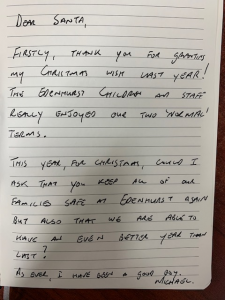 DEAR SANTA,
FIRSTLY, THANK YOU FOR GRANTING
MY CHRISTMAS WISH LAST YEAR!
THE EDENHURST CHILDREN AND STAFF
REALLY ENJOYED OUR TWO 'NORMAL'
TERMS.
THIS YEAR, FOR CHRISTMAS, COULD I
ASK THAT YOU KEEP ALL OF OUR
FAMILIES SAFE AT EDENHURST AGAIN
BUT ALSO THAT WE ARE ABLE TO
HAVE AN EVEN BETTER YEAR THAN
LAST?
AS EVER, I HAVE BEEN A GOOD BOY.
MICHAEL.